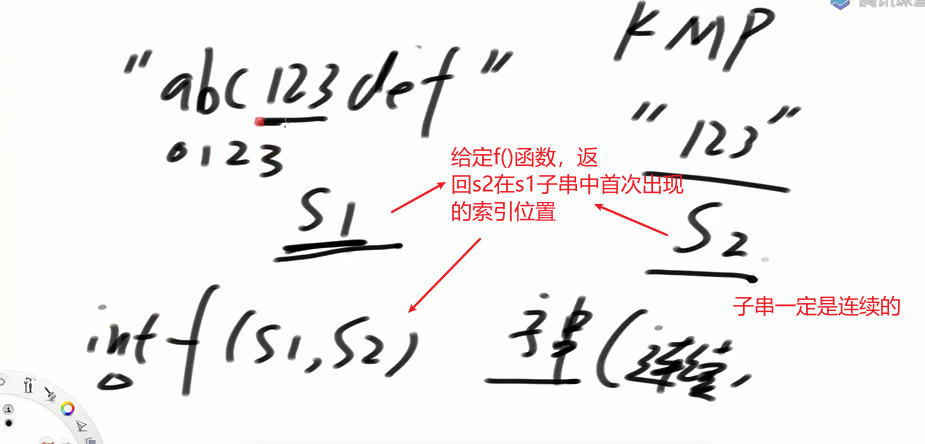 腾讯课堂
KMP
"abc123def"
"123"
0 1 2 3
给定f()函数，返
回s2在s1子串中首次出现
的索引位置
S1
S2
子串一定是连续的
int f(S1,S2)
子串(连续,